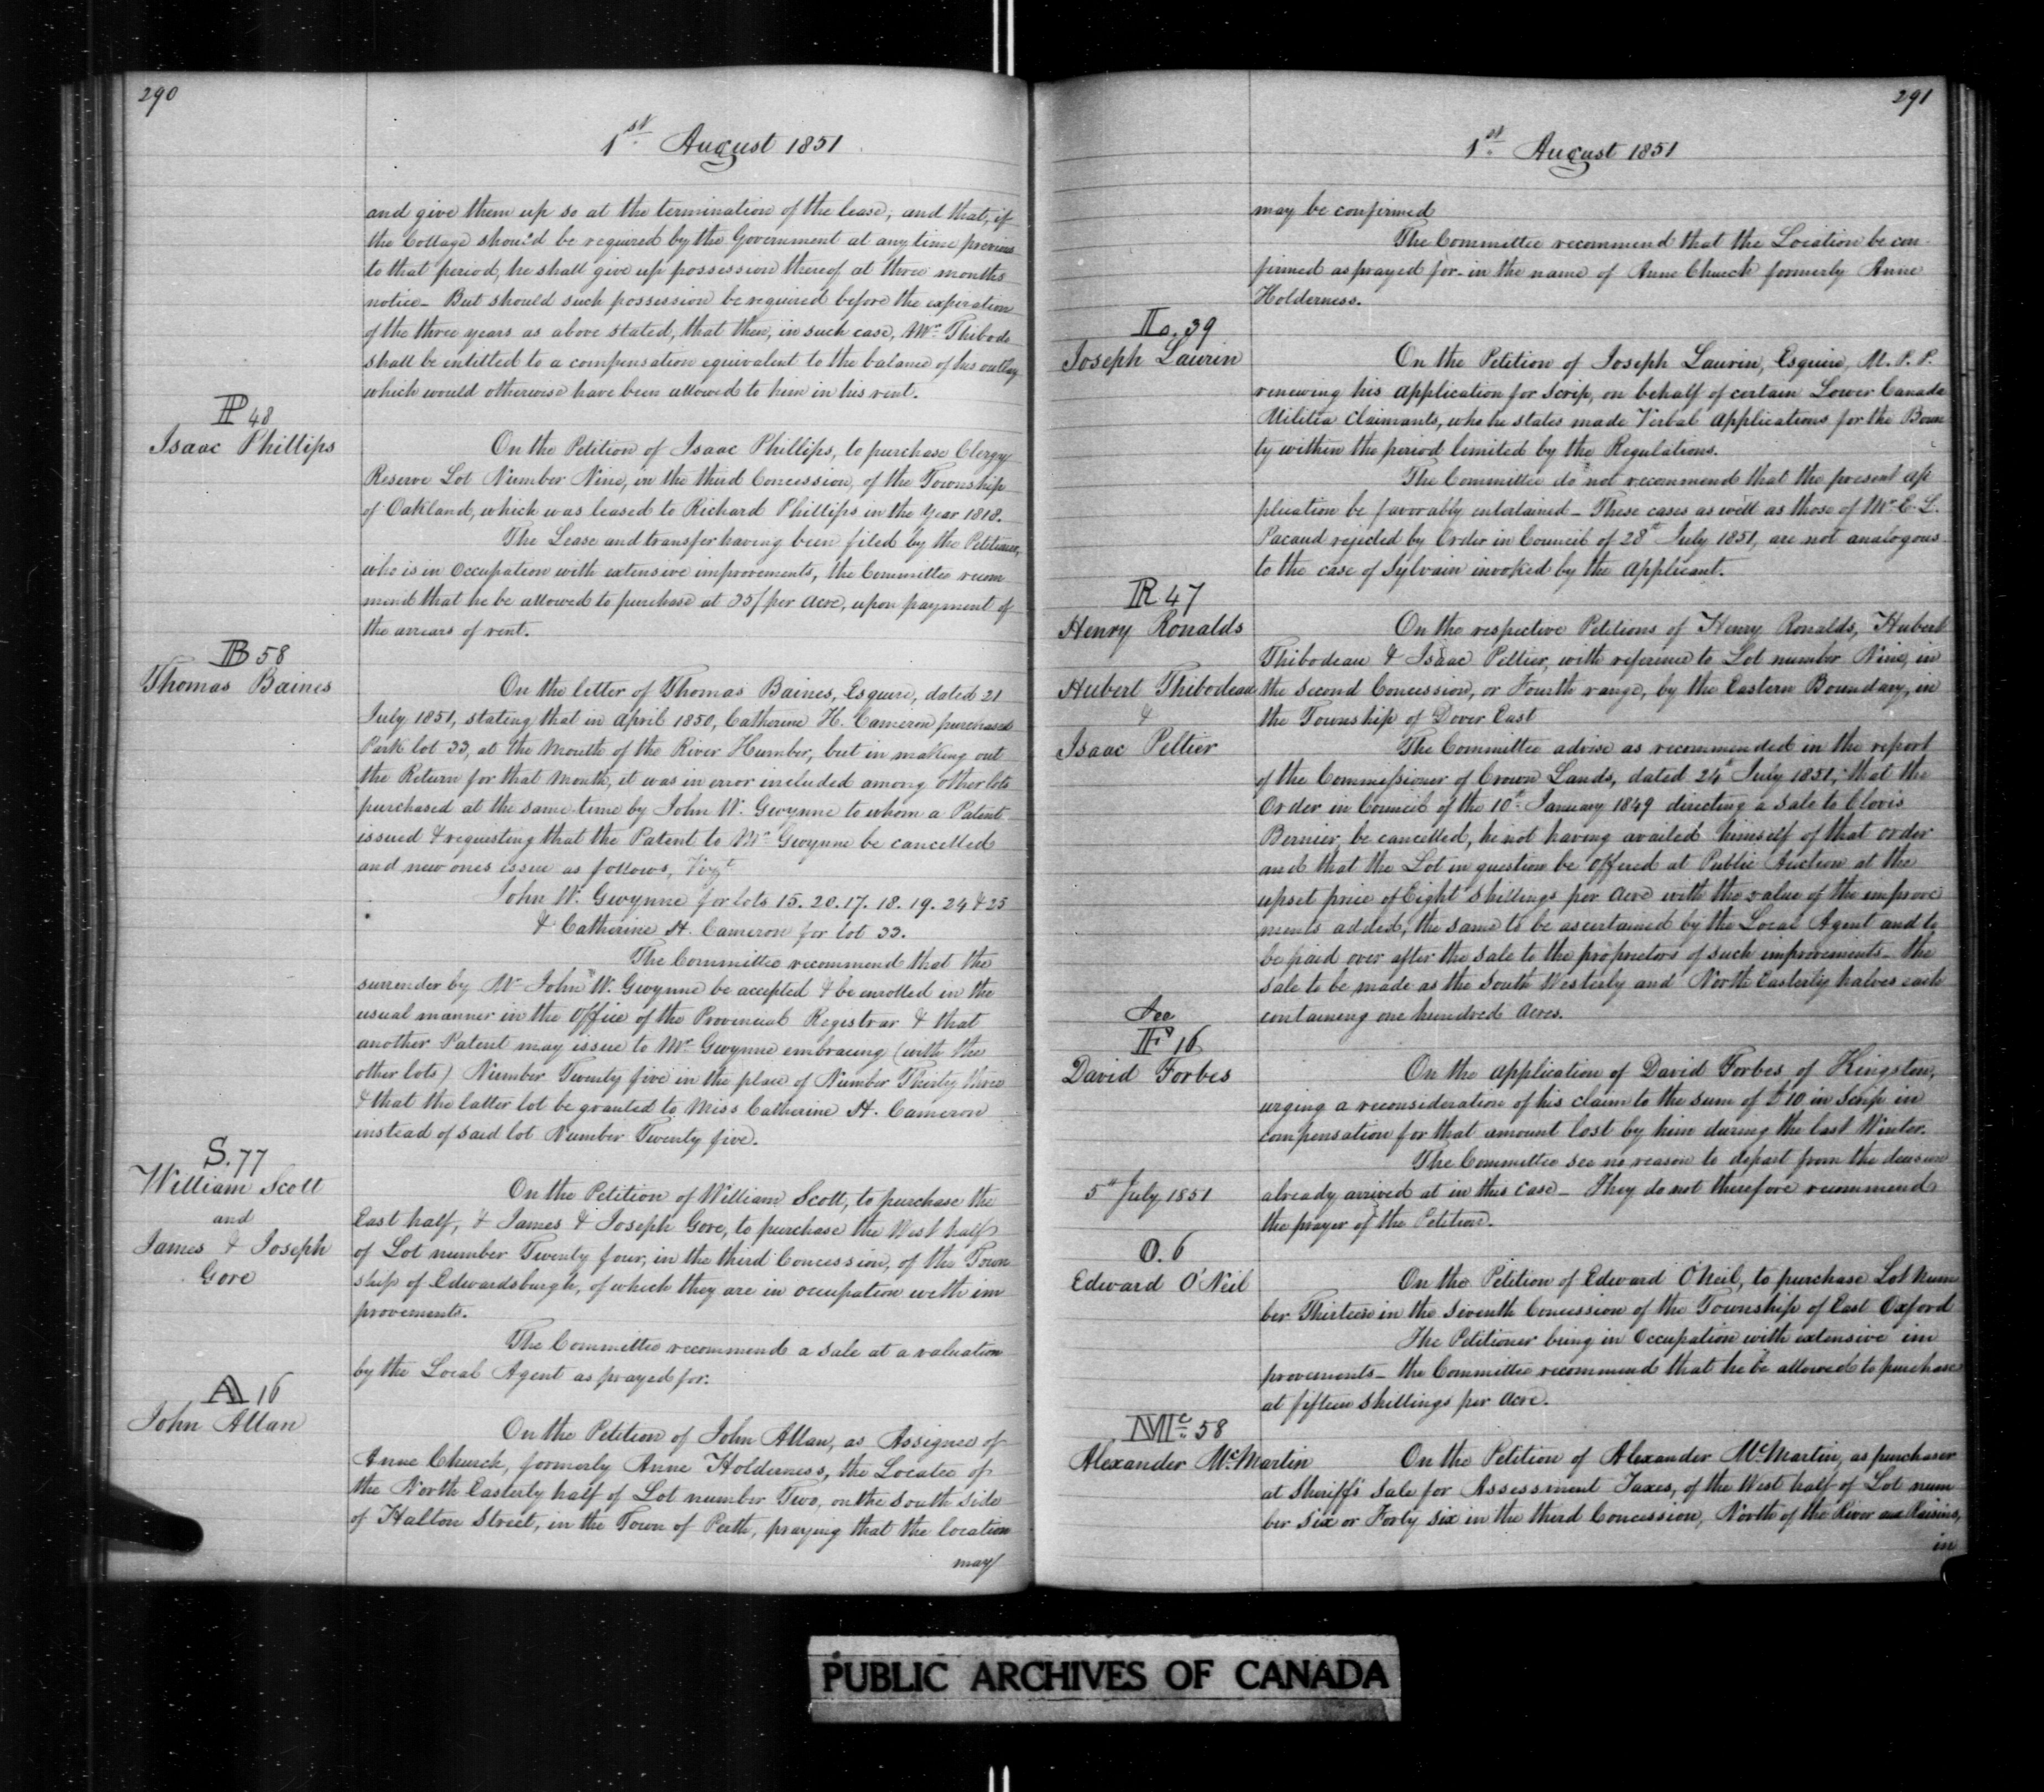 290
1st August 1851
and give them up so at the termination of the lease, and that, if
the Cottage should be required by the Government at any time previous
to that period, he shall give up possession thereof at three months
notice_ But should such possession be required before the expiration
of the three years as above stated, that then, in such case, Mr. Thibodo
shall be entitled to a compensation equivalent to the balance of his outlay
which would otherwise have been allowed to him in his rent.
P 48
Isaac Phillips
On the Petition of Isaac Phillips, to purchase Clergy
Reserve Lot Number Nine, in the third Concession, of the Township
of Oakland, which was leased to Richard Phillips in the Year 1818.
The Lease and transfer having been filed by the Petitioner,
who is in Occupation with extensive improvements, the Committee recom
mend that he be allowed to purchase at 35/ per Acre, upon payment of
the arrears of rent.
B 58
Thomas Baines
On the letter of Thomas Baines, Esquire, dated 21
July 1851, stating that in April 1850, Catherine H. Cameron purchased
Park lot 33, at the Mouth of the River Humber, but in making out
the Return for that Month, it was in error included among other lots
purchased at the same time by John W. Gwynne to whom a Patent
issued & requesting that the Patent to Mr Gwynne be cancelled
and new ones issue as follows, Vizt
John W. Gwynne for lots 15. 20. 17. 18. 19. 24 & 25
& Catherine H. Cameron for lot 33.
The Committee recommend that the
surrender by Mr John W. Gwynne be accepted & be enrolled in the
usual manner in the Office of the Provincial Registrar & that
another Patent may issue to Mr Gwynne embracing (with the
other lots) Number Twenty five in the place of Number Thirty three
& that the latter lot be granted to Miss Catherine H. Cameron
instead of said lot Number Twenty five.
S. 77
William Scott
and
James & Joseph
Gore
On the Petition of William Scott, to purchase the
East half, & James & Joseph Gore, to purchase the West half
of Lot number Twenty four, in the third Concession, of the Town
ship of Edwardsburgh, of which they are in occupation with im
provements.
The Committee recommend a sale at a valuation
by the Local Agent as prayed for.
A 16
John Allan
On the Petition of John Allan, as Assignee of
Anne Church, formerly Anne Holderness, the Locatee of
the North Easterly half of Lot number Two, on the South side
of Halton Street, in the Town of Perth, praying that the location
may
291
1st August 1851
may be confirmed
The Committee recommend that the Location be con-
firmed as prayed for_ in the name of Anne Church formerly Anne
Holderness.
L. 39
Joseph Laurin
On the Petition of Joseph Laurin, Esquire, M. P. P.
renewing his application for scrip, on behalf of certain Lower Canada
Militia Claimants, who he states made Verbal Applications for the Boun
ty within the period limited by the Regulations.
The Committee do not recommend that the present ap
plication be favorably entertained_ These cases as well as those of Mr E. L.
Pacaud rejected by Order in Council of 28th July 1851, are not analogous
to the case of Sylvain invoked by the Applicant.
R 47
Henry Ronalds
Hubert Thibodeau
&
Isaac Peltier
On the respective Petitions of Henry Ronalds, Hubert
Thibodeau & Isaac Peltier, with reference to Lot number Nine, in
the Second Concession, or Fourth range, by the Eastern Boundary, in
the Township of Dover East
The Committee advise as recommended in the report
of the Commissioner of Crown Lands, dated 24th July 1851, that the
Order in Council of the 10th January 1849 directing a sale to Clovis
Bernier, be cancelled, he not having availed himself of that order
and that the Lot in question be offered at Public Auction at the
upset price of Eight Shillings per Acre with the value of the improve
ments added, the same to be ascertained by the Local Agent and to
be paid over after the sale to the proprietors of such improvements_ the
sale to be made as the South Westerly and North Easterly halves each
containing one hundred Acres.
See
F 16
David Forbes
5th July 1851
On the application of David Forbes of Kingston,
urging a reconsideration of his claim to the sum of £10 in Scrip in
compensation for that amount lost by him during the last Winter.
The Committee see no reason to depart from the decision
already arrived at in this case_ They do not therefore recommend
the prayer of the Petition.
O. 6
Edward O'Neil
On the Petition of Edward O'Neil, to purchase Lot Num
ber Thirteen in the Seventh Concession of the Township of East Oxford
The Petitioner being in Occupation with extensive im
provements_ the Committee recommend that he be allowed to purchase
at fifteen Shillings per Acre.
Mc 58
Alexander McMartin
On the Petition of Alexander McMartin, as purchaser
at Sheriff's Sale for Assessment Taxes, of the West half of Lot num
ber six or Forty six in the third Concession, North of the River aux Raisins,
in
PUBLIC ARCHIVES OF CANADA